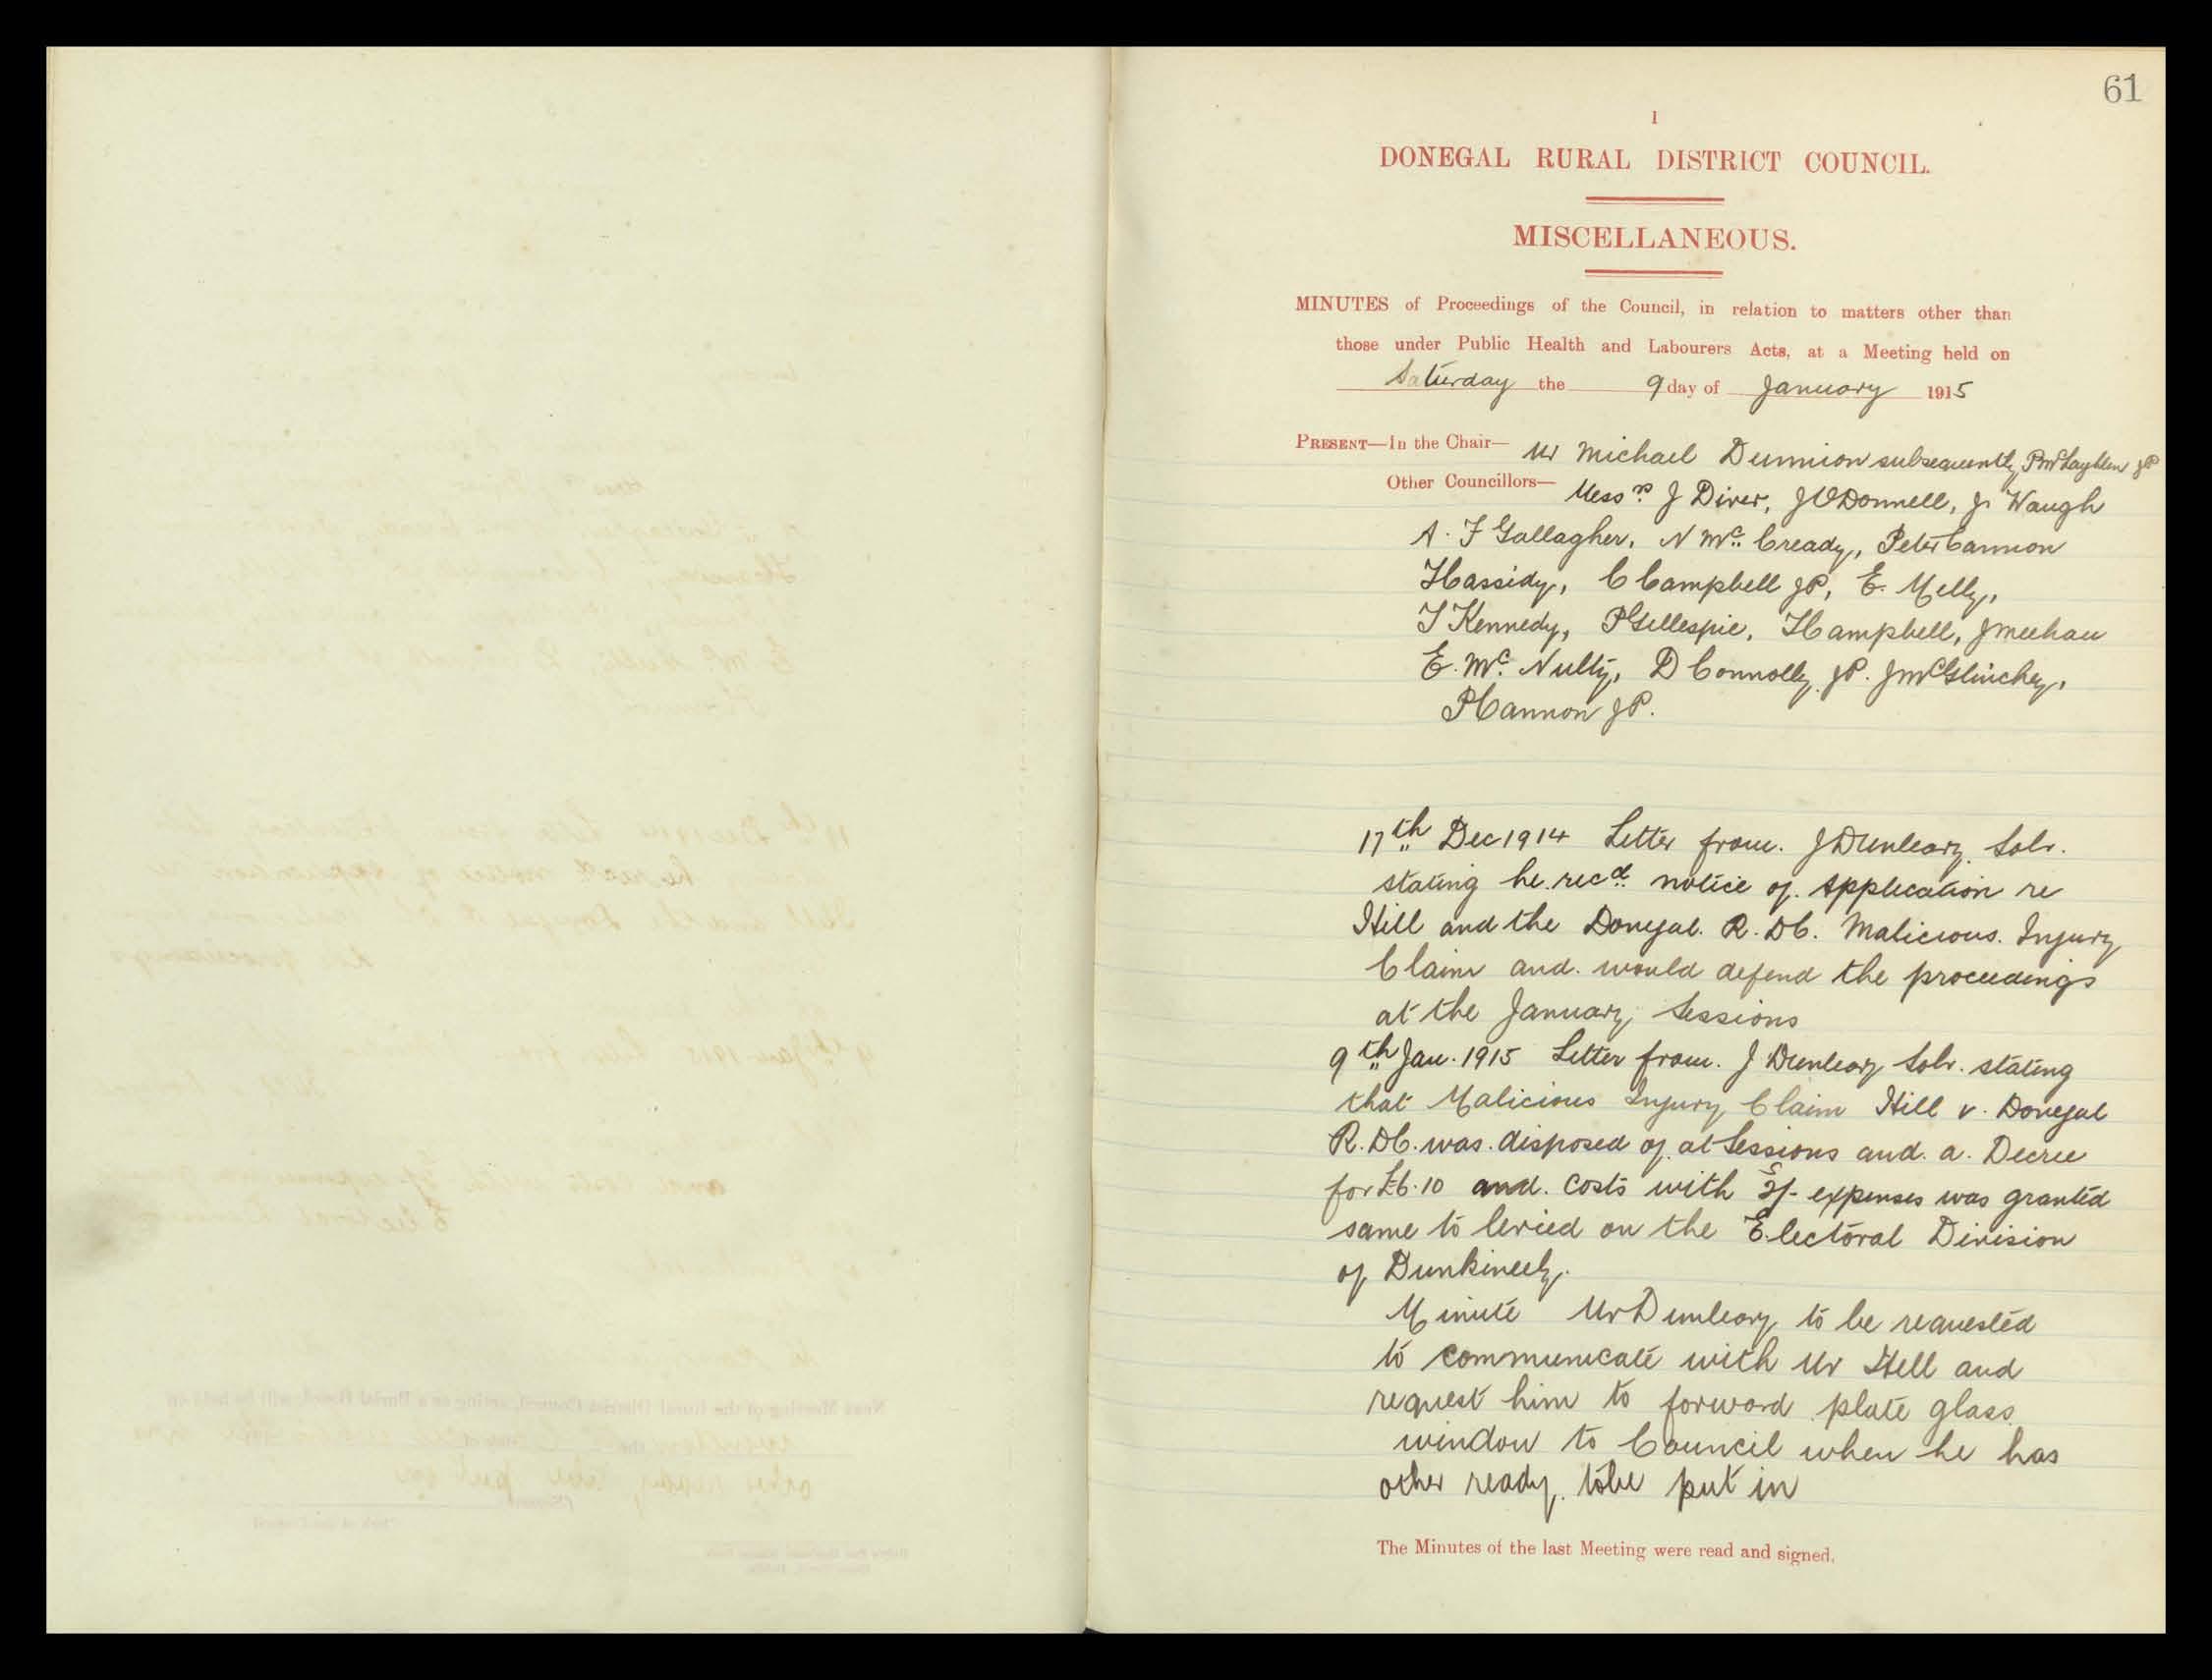 61
1
DONEGAL RURAL DISTRICT COUNCIL.
MISCELLANEOUS.
MINUTES of Proceedings of the Council, in relation to matters other than
those under Public Health and Labourers Acts, at a Meeting held on
Saturday the 9 day of January 1915
PRESENT—In the Chair— Mr Michael Dunnion subsequently P McLaghlen JP
Other Councillors— Messrs J Diver, J O'Donnell, Jn Waugh
A. F Gallagher, N Mc Cready, Peter Cannon
H Cassidy, C Campbell JP, E. Melly,
T Kennedy, P Gillespie, H Campbell, J Meehan
E. Mc Nulty, D Connolly JP. J McGlinchey,
P Cannon JP.
17th Dec 1914 Letter from. J Dunleavy Solr.
stating he recd notice of Application re
Hill and the Donegal. R. D C. Malicious. Injury
Claim and. would defend the proceedings
at the January Sessions
9th Jan. 1915 Letter from. J Dunleavy Solr. stating
that Malicious Injury Claim Hill v. Donegal
R. D C. was disposed of at Sessions and. a. Decree
for £6.10 and. Costs with expenses was granted
same to levied on the Electoral Division
of Dunkineely.
Minute Mr Dunleavy to be requested
to communicate with Mr Hill and
request him to forward plate glass
window to Council when he has
other ready to be put in
The Minutes of the last Meeting were read and signed.